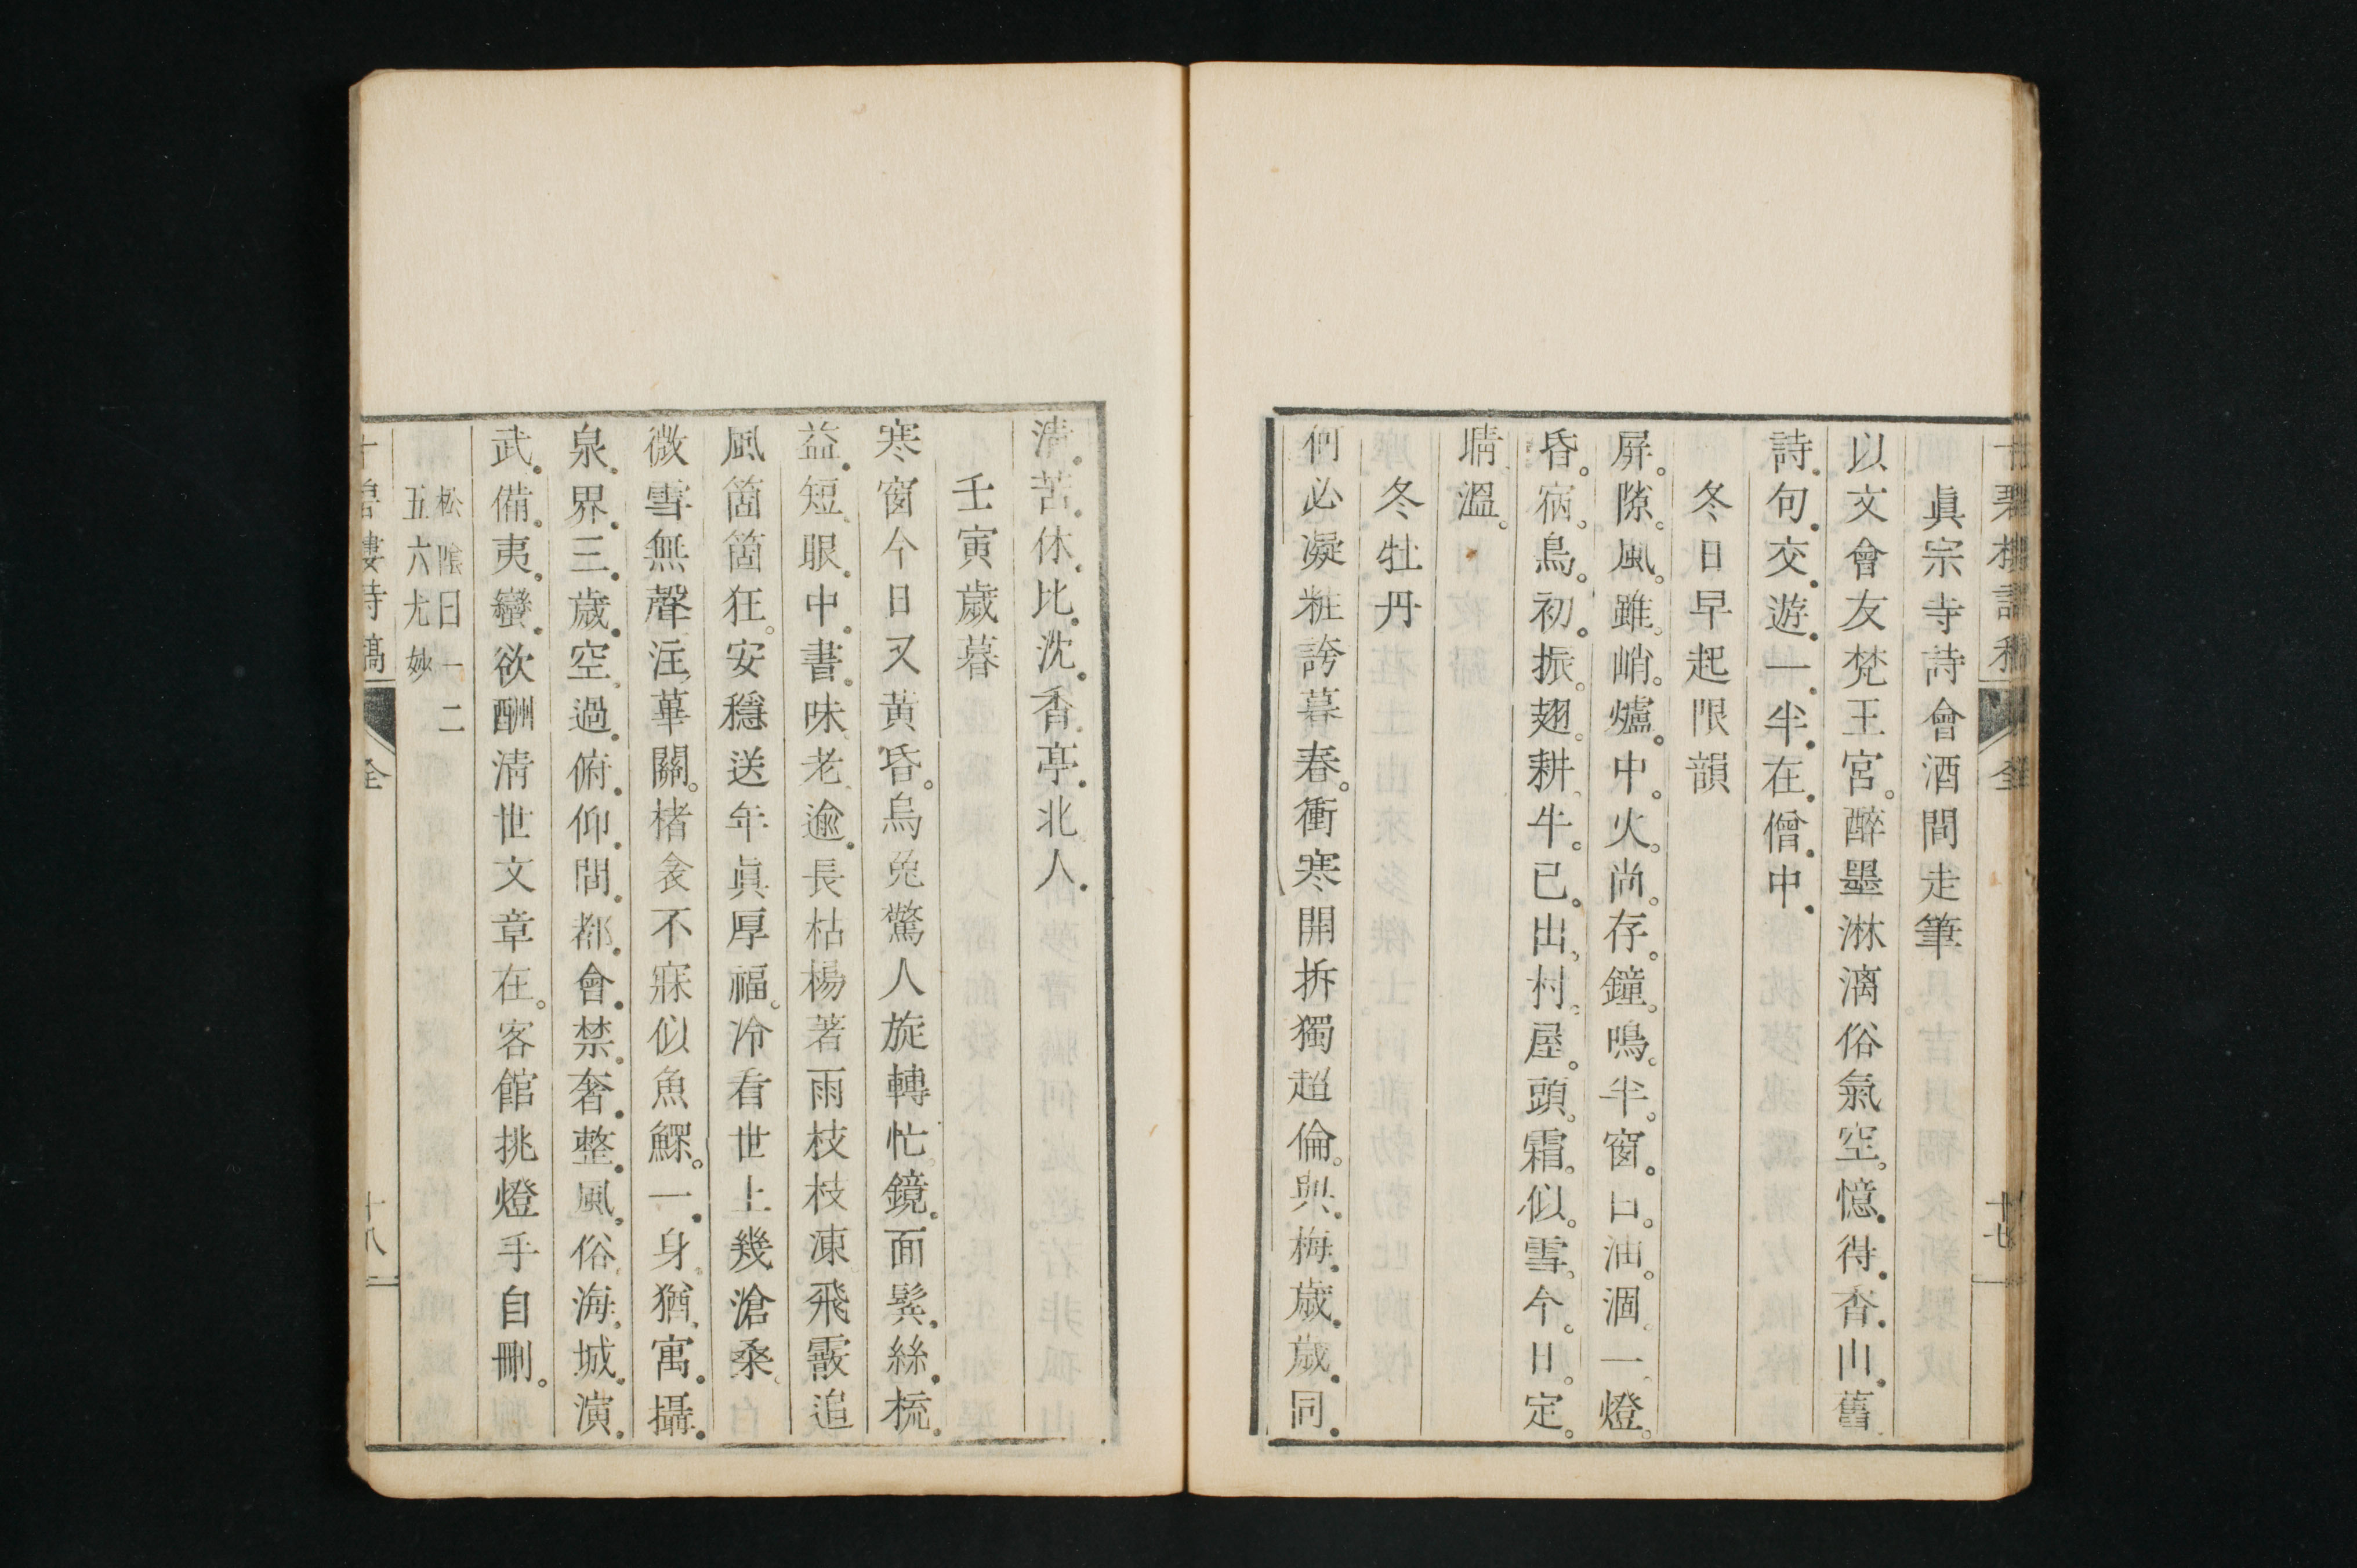 眞宗寺詩會酒間走筆
以文會友梵王宮。醉墨淋漓俗氣空。憶得香山舊
詩句交遊一半在僧中
冬日早起限韻
屏隙風雖峭爐中火尚存。鐘鳴半窗口油涸一燈
昏。病鳥初振翅耕牛已出村屋頭霜似雪今日定
晴溫。
冬牡丹
何必凝粧誇暮春。衝寒開拆獨超倫。與梅歲歲同
十七
清苦休比沈香亭北人
壬寅歲暮
寒窗今日又黃昏。烏兔驚人旋轉忙。鏡面鬂絲梳
益短眼中書味老逾長枯楊著雨枝枝凍飛霰追
風箇箇狂。安穩送年眞厚福。冷看世上幾滄桑
微雪無聲注華關。楮衾不寐似魚鰥。一身猶寓攝
泉界三歲空過俯仰間都會禁奢整風俗海城演
武備夷蠻欲酬清世文章在。客館挑燈手自刪。
松陰曰一二
五六尤妙
樓詩稿
全
十八